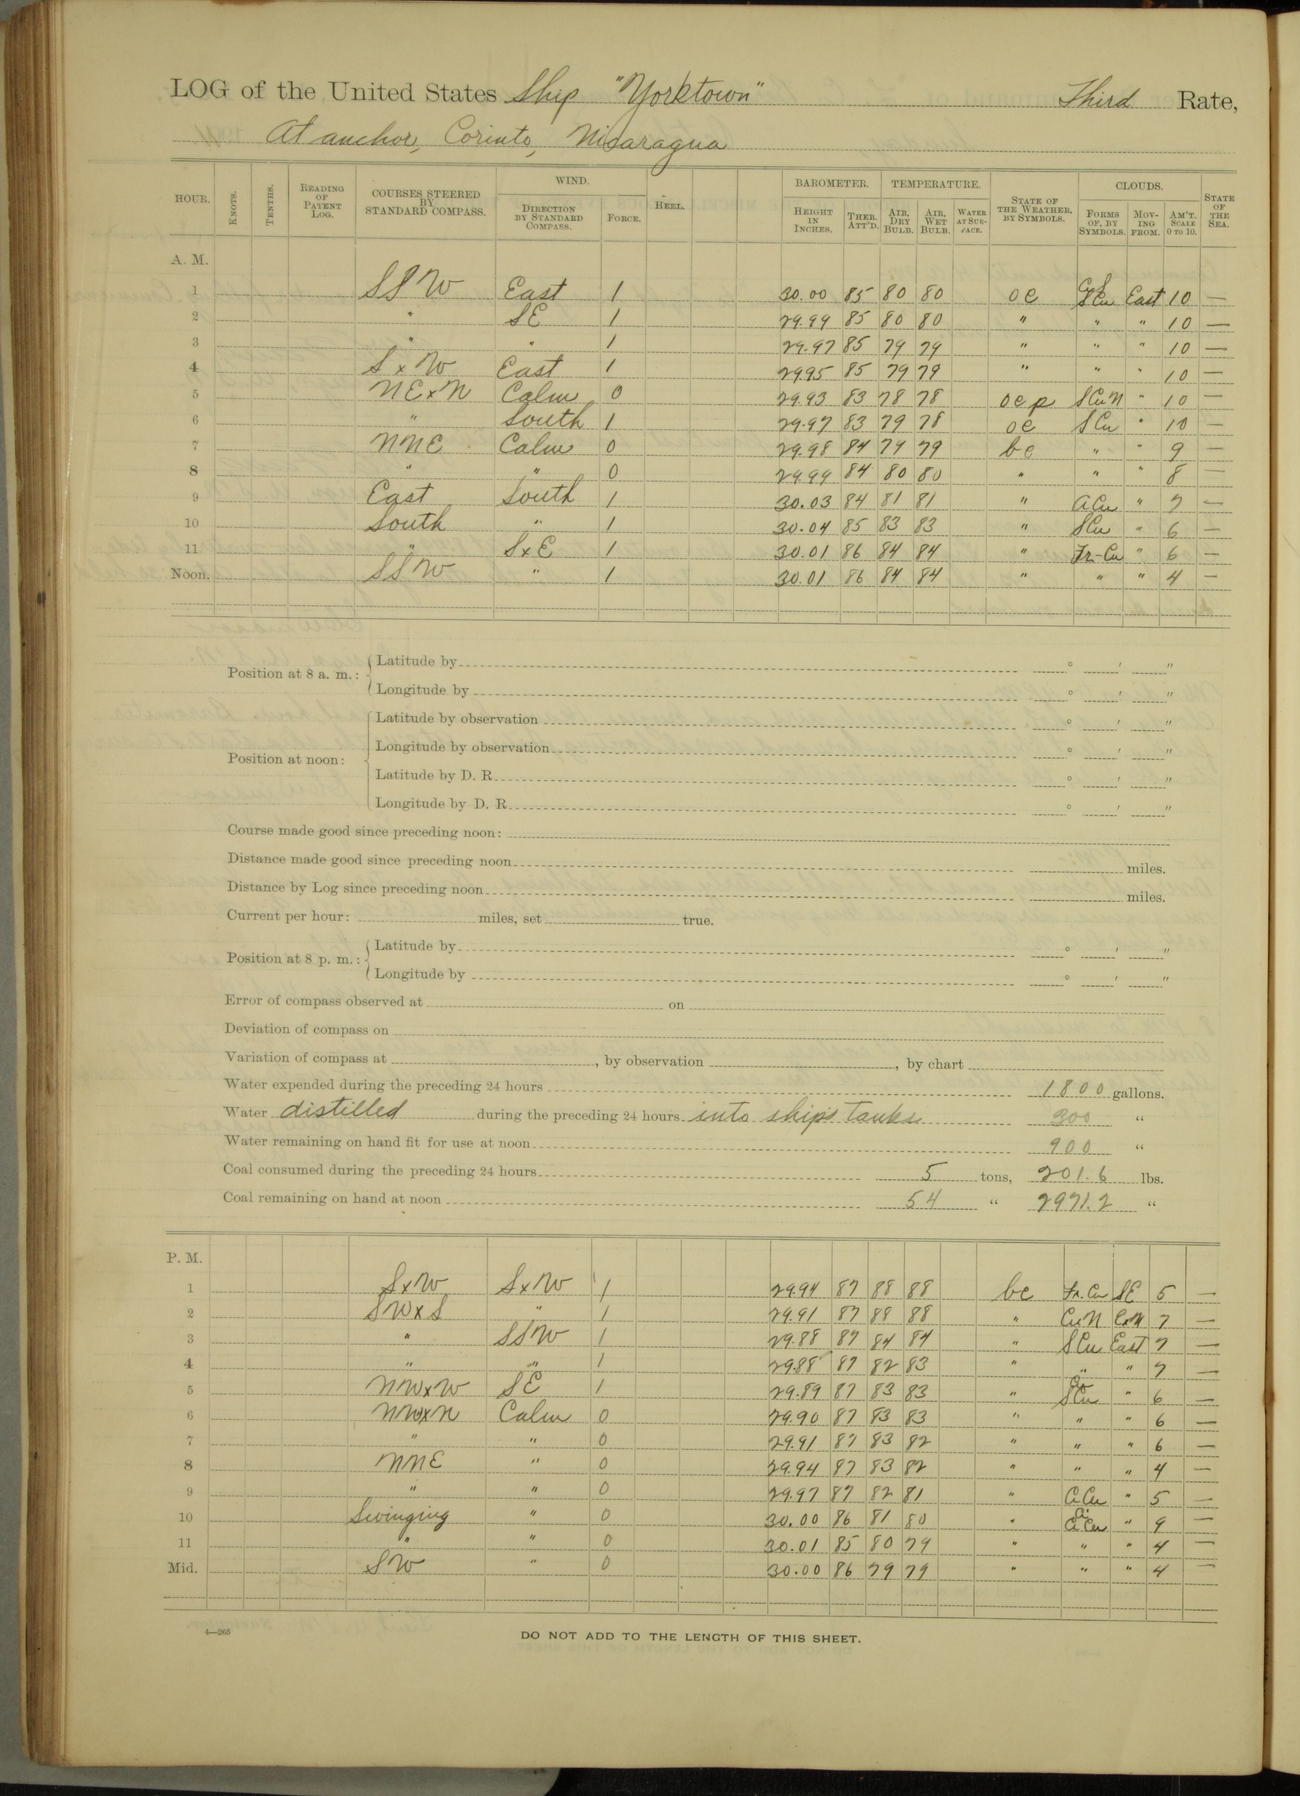 LOG of the United States Ship "Yorktown" Third Rate,
At anchor, Corinto, Nicaragua
HOUR. KNOTS. TENTHS. READING OF PATENT LOG. COURSES STEERED BY STANDARD COMPASS. WIND. DIRECTION BY STANDARD COMPASS. FORCE. HEEL. BAROMETER. HEIGHT IN INCHES. THER. ATT'D. TEMPERATURE. AIR, DRY BULB. AIR, WET BULB. WATER AT SUR-FACE. STATE OF THE WEATHER, BY SYMBOLS. CLOUDS. FORMS OF, BY SYMBOLS. MOV-ING FROM. AM'T. SCALE 0 TO 10. STATE OF THE SEA.
A. M.
1 SSW East 1 30.00 85 80 80 oc SCu East 10 —
2 " SE 1 29.99 85 80 80 " " " 10 —
3 " " 1 29.97 85 79 79 " " " 10 —
4 SxW East 1 29.95 85 79 79 " " " 10 —
5 NExN Calm 0 29.93 83 78 78 ocp SCuN " 10 —
6 " South 1 29.97 83 79 78 oc SCu " 10 —
7 NNE Calm 0 29.98 84 79 79 bc " " 9 —
8 " " 0 29.99 84 80 80 " " " 8 —
9 East South 1 30.03 84 81 81 " ACu " 7 —
10 South " 1 30.04 85 83 83 " SCu " 6 —
11 " SxE 1 30.01 86 84 84 " Fr-Cu " 6 —
Noon. SSW " 1 30.01 86 84 84 " " " 4 —
Position at 8 a. m.: Latitude by ° ' "
Longitude by ° ' "
Position at noon: Latitude by observation ° ' "
Longitude by observation ° ' "
Latitude by D. R. ° ' "
Longitude by D. R. ° ' "
Course made good since preceding noon:
Distance made good since preceding noon miles.
Distance by Log since preceding noon miles.
Current per hour: miles, set true.
Position at 8 p. m.: Latitude by ° ' "
Longitude by ° ' "
Error of compass observed at on
Deviation of compass on
Variation of compass at , by observation , by chart
Water expended during the preceding 24 hours 1800 gallons.
Water distilled during the preceding 24 hours into ship's tanks 300 "
Water remaining on hand fit for use at noon 900 "
Coal consumed during the preceding 24 hours 5 tons, 201.6 lbs.
Coal remaining on hand at noon 54 " 2971.2 "
P. M.
1 SxW SxW 1 29.94 87 88 88 bc Fr. Cu SE 5 —
2 SWxS " 1 29.91 87 88 88 " CuN 7 —
3 " SSW 1 29.88 87 84 84 " SCu East 7 —
4 " " 1 29.88 87 82 83 " " " 7 —
5 NWxW SE 1 29.89 87 83 83 " SCu " 6 —
6 NWxN Calm 0 29.90 87 83 83 " " " 6 —
7 " " 0 29.91 87 83 82 " " " 6 —
8 NNE " 0 29.94 87 83 82 " " " 4 —
9 " " 0 29.97 87 82 81 " CCu " 5 —
10 Swinging " 0 30.00 86 81 80 " Ci CCu " 9 —
11 " " 0 30.01 85 80 79 " " " 4 —
Mid. SW " 0 30.00 86 79 79 " " " 4 —
4—265
DO NOT ADD TO THE LENGTH OF THIS SHEET.